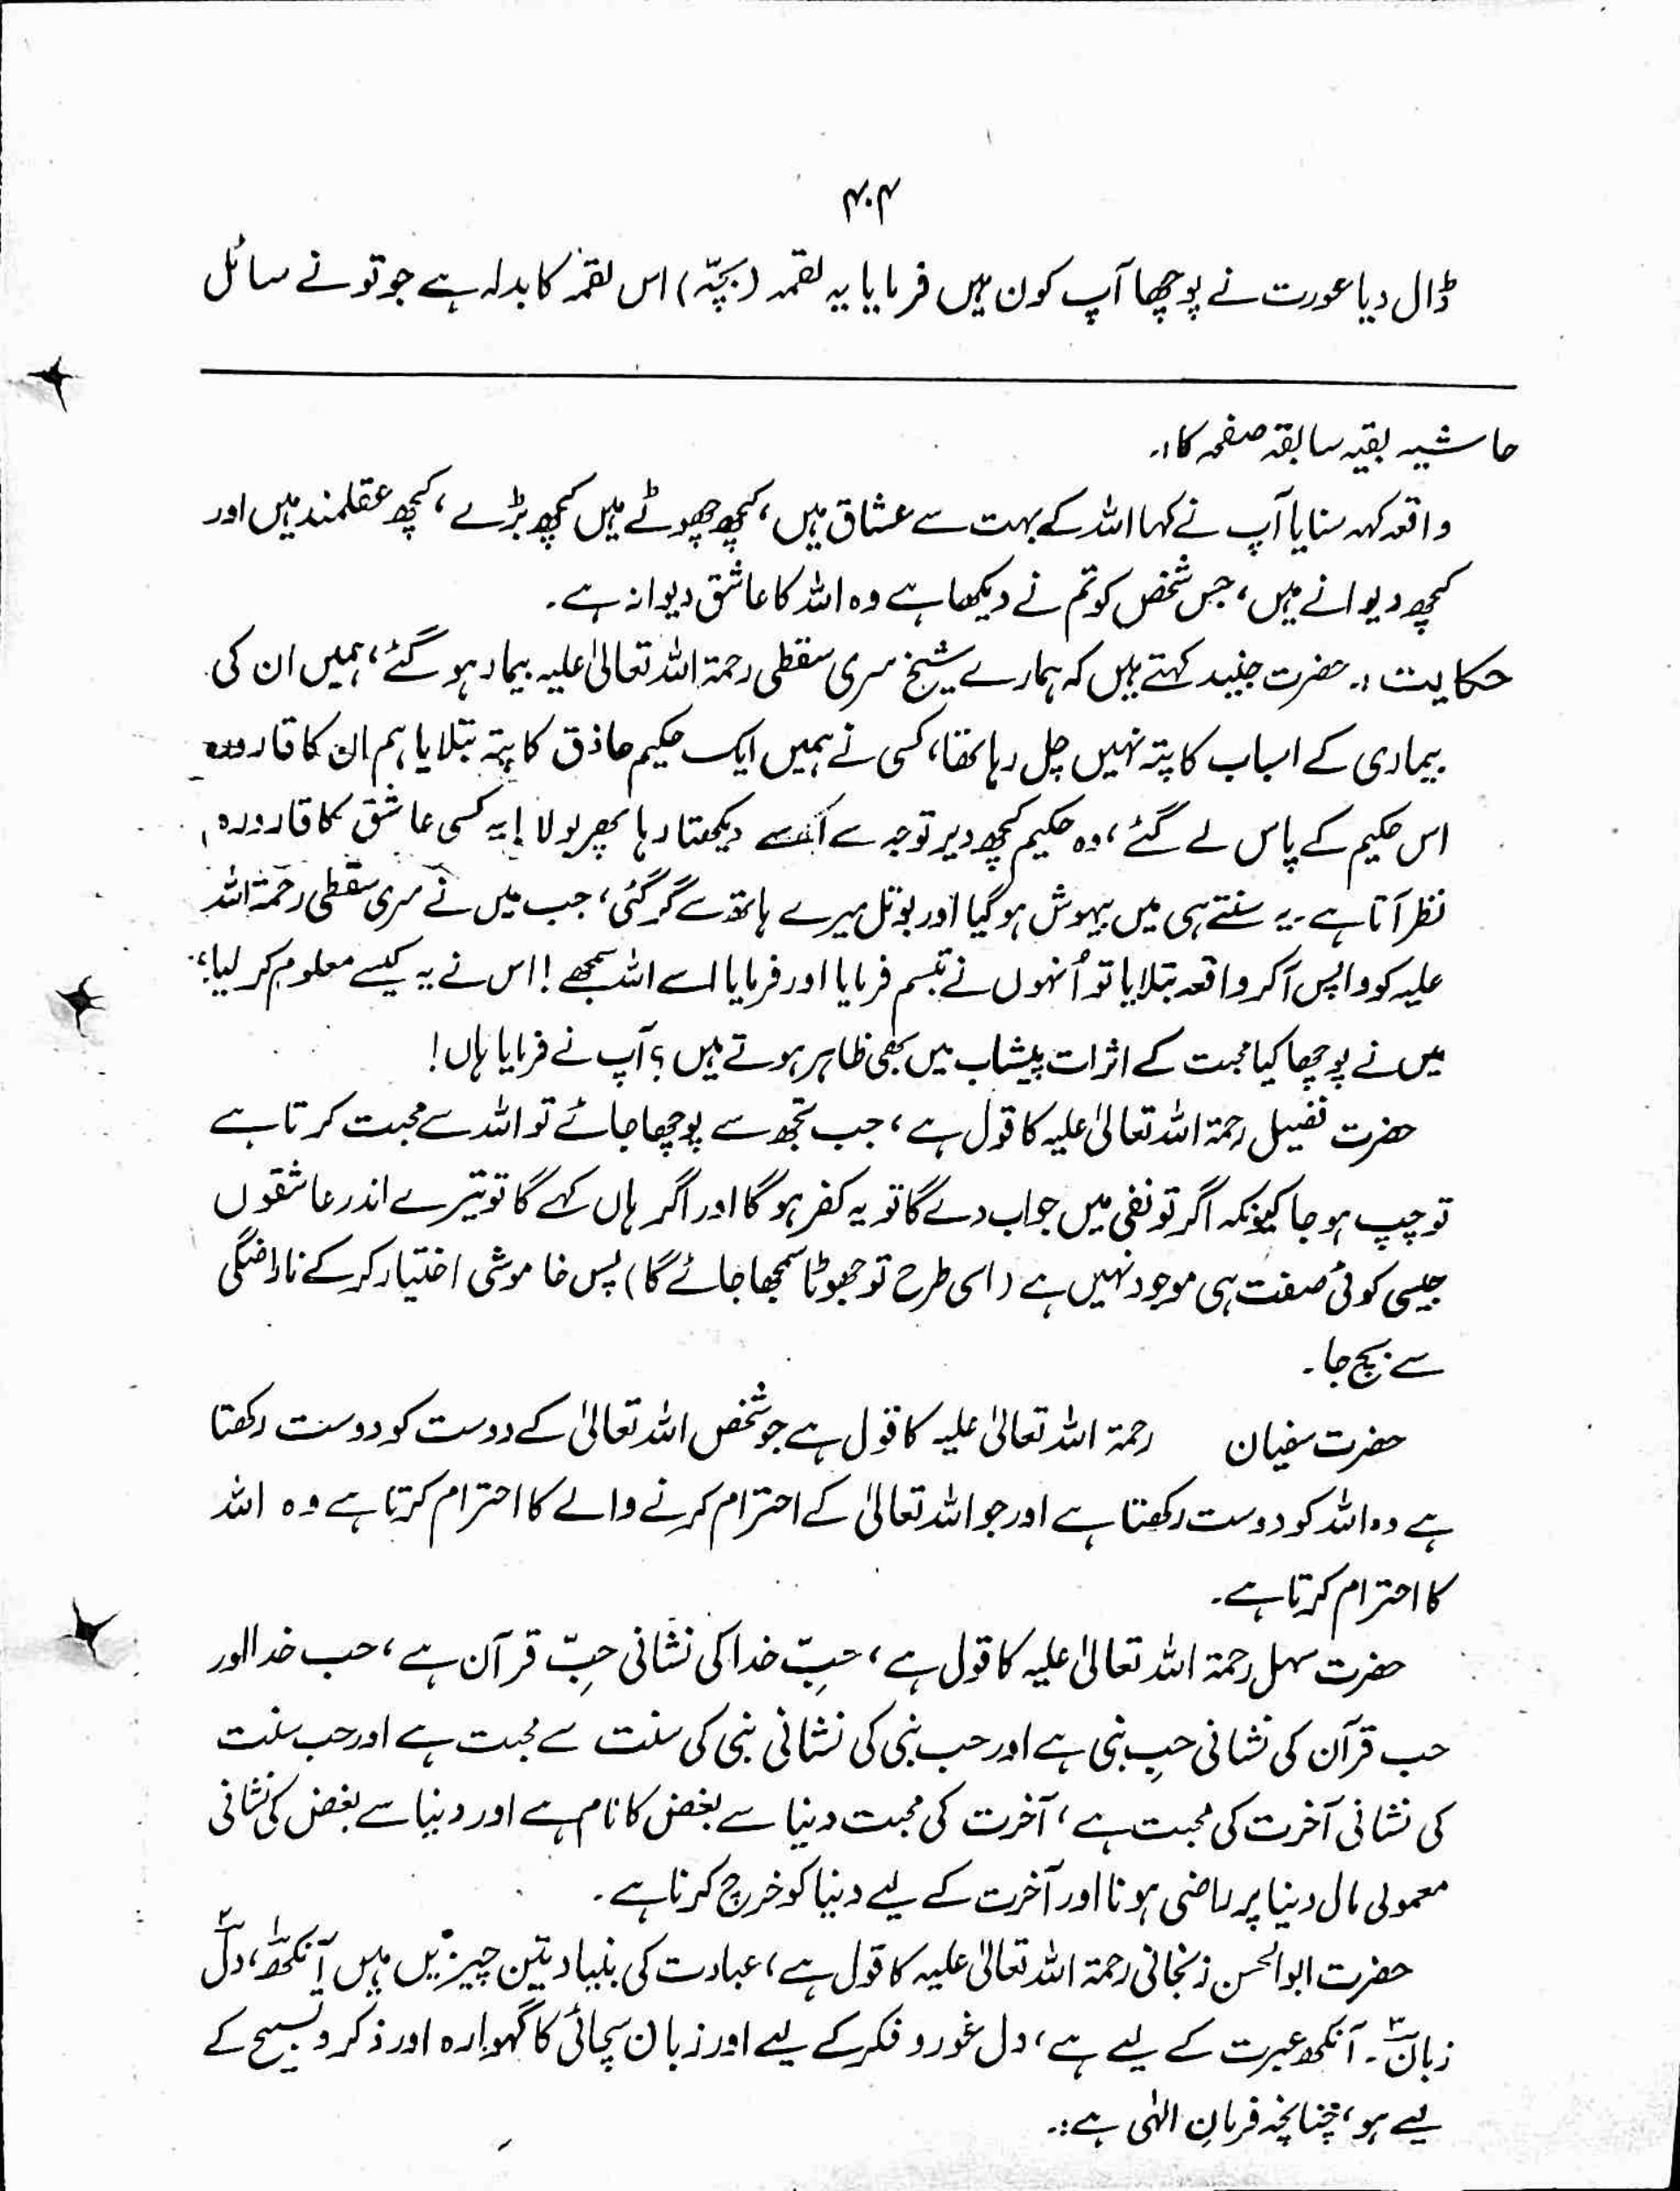 ۴۰۴
ڈال دیا عورت نے پوچھا آپ کون ہیں فرمایا یہ لقمہ (بچّہ) اس لقمہ کا بدلہ ہے جو تو نے سائل
حاشیہ بقیہ سابقہ صفحہ کا:۔
واقعہ کہہ سنایا آپ نے کہا اللہ کے بہت سے عشاق ہیں، کچھ چھوٹے ہیں کچھ بڑے، کچھ عقلمند ہیں اور
کچھ دیوانے ہیں، جس شخص کو تم نے دیکھا ہے وہ اللہ کا عاشق دیوانہ ہے۔
حکایت :۔ حضرت جنید کہتے ہیں کہ ہمارے شیخ سری سقطی رحمۃ اللہ تعالیٰ علیہ بیمار ہو گئے، ہمیں ان کی
بیماری کے اسباب کا پتہ نہیں چل رہا تھا، کسی نے ہمیں ایک حکیم حاذق کا پتہ بتلایا ہم ان کا قارورہ
اس حکیم کے پاس لے گئے، وہ حکیم کچھ دیر توجہ سے اُسے دیکھتا رہا پھر بولا! یہ کسی عاشق کا قارورہ
نظر آتا ہے۔ یہ سنتے ہی میں بیہوش ہو گیا اور بوتل میرے ہاتھ سے گر گئی، جب میں نے سری سقطی رحمۃ اللہ
علیہ کو واپس آ کر واقعہ بتلایا تو اُنہوں نے تبسم فرمایا اور فرمایا اسے اللہ سمجھے! اس نے یہ کیسے معلوم کر لیا؟
میں نے پوچھا کیا محبت کے اثرات پیشاب میں بھی ظاہر ہوتے ہیں؟ آپ نے فرمایا ہاں!
حضرت فضیل رحمۃ اللہ تعالیٰ علیہ کا قول ہے، جب تجھ سے پوچھا جائے تو اللہ سے محبت کرتا ہے
تو چپ ہو جا کیونکہ اگر تو نفی میں جواب دے گا تو یہ کفر ہو گا اور اگر ہاں کہے گا تو تیرے اندر عاشقوں
جیسی کوئی صفت ہی موجود نہیں ہے (اسی طرح تو جھوٹا سمجھا جائے گا) پس خاموشی اختیار کر کے ناراضگی
سے بچ جا۔
حضرت سفیان رحمۃ اللہ تعالیٰ علیہ کا قول ہے جو شخص اللہ تعالیٰ کے دوست کو دوست رکھتا
ہے وہ اللہ کو دوست رکھتا ہے اور جو اللہ تعالیٰ کے احترام کرنے والے کا احترام کرتا ہے وہ اللہ
کا احترام کرتا ہے۔
حضرت سہل رحمۃ اللہ تعالیٰ علیہ کا قول ہے، حبِّ خدا کی نشانی حبِّ قرآن ہے، حب خدا اور
حب قرآن کی نشانی حبِ نبی ہے اور حب نبی کی نشانی نبی کی سنت سے محبت ہے اور حب سنت
کی نشانی آخرت کی محبت ہے، آخرت کی محبت دنیا سے بغض کا نام ہے اور دنیا سے بغض کی نشانی
معمولی مال دنیا پر راضی ہونا اور آخرت کے لیے دنیا کو خرچ کرنا ہے۔
حضرت ابوالحسن زنجانی رحمۃ اللہ تعالیٰ علیہ کا قول ہے، عبادت کی بنیاد تین چیزیں ہیں آنکھ، دل
زبان۔ آنکھ عبرت کے لیے ہے، دل غور و فکر کے لیے اور زبان سچائی کا گہوارہ اور ذکر و تسبیح کے
لیے ہو، چنانچہ فرمانِ الہٰی ہے:۔